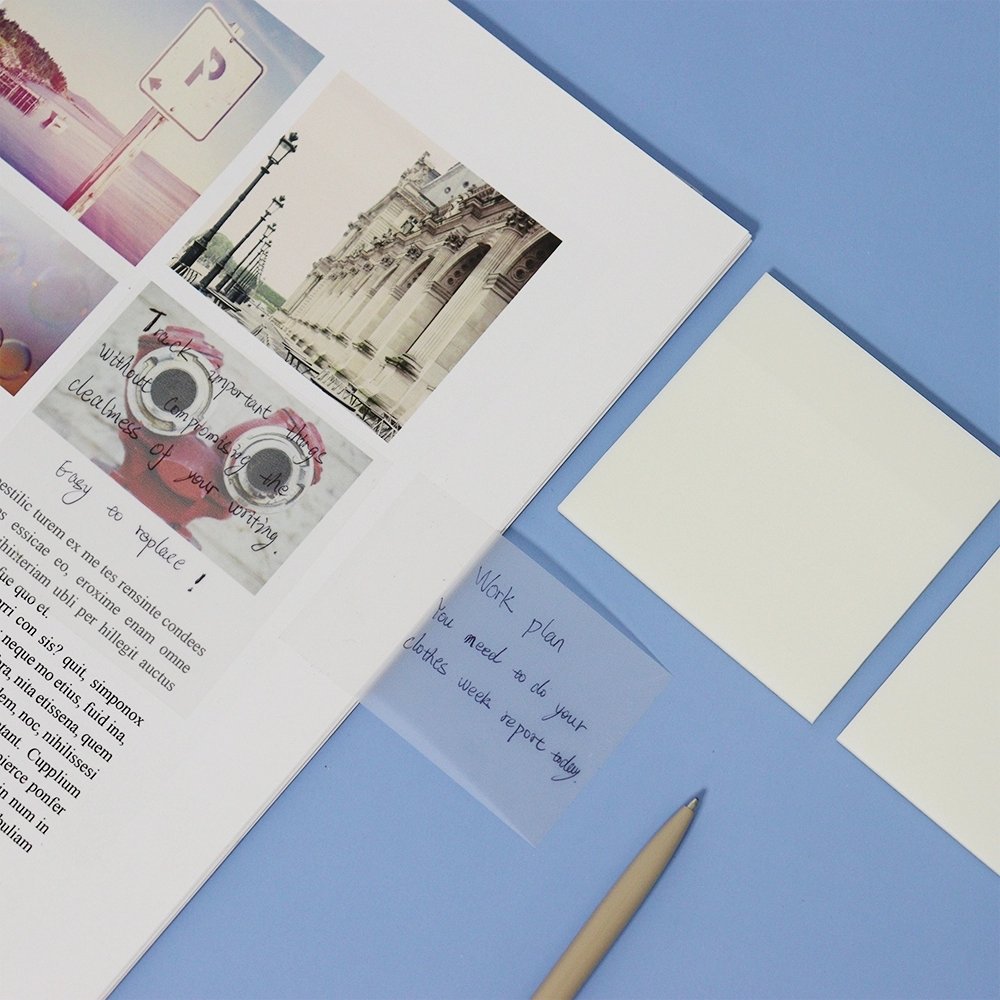 P
Track important things
without Compromising the
clealiness of your writing.
Easy to replace !
estilic turem ex me tes rensinte condees
essicae eo, eroxime enam omne
ubli per hillegit auctus
fue quo et.
rri con sis? quit, simponox
neque mo etius, fuid ina,
ra, nita etissena, quem
lem, noc, nihilissesi
tant. Cupplium
ierce ponfer
in num in
buliam
Work plan
You need to do your
clothes week report today.